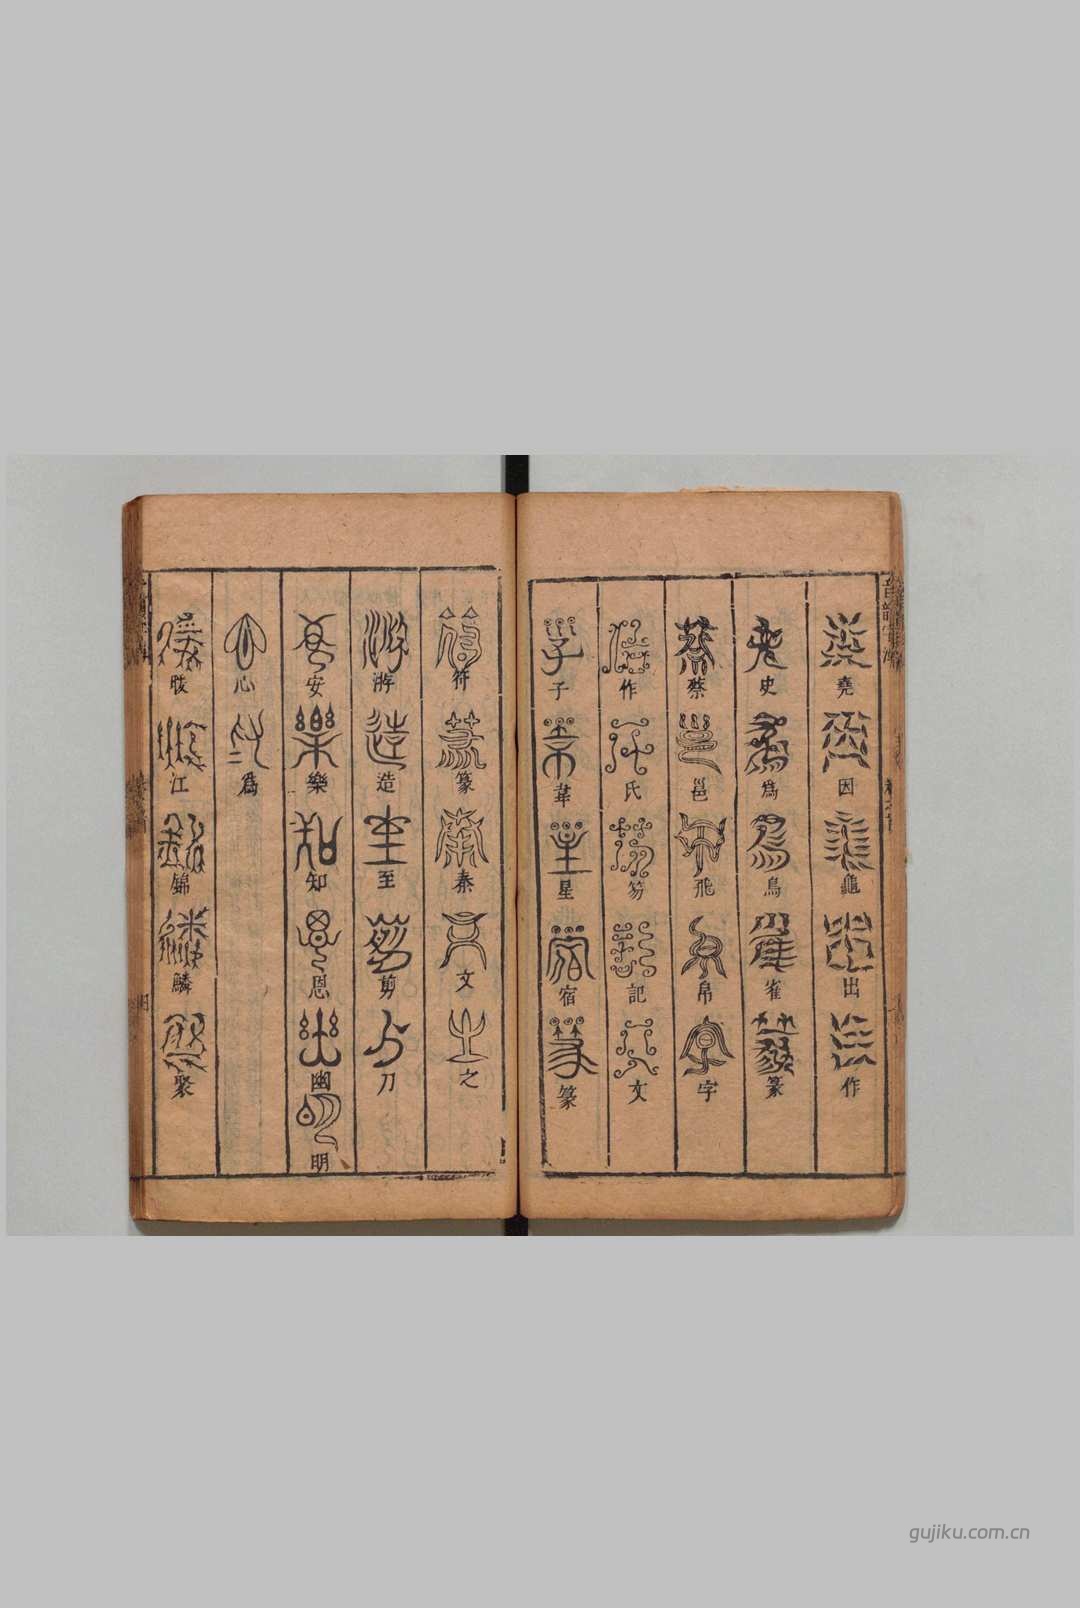 堯因龜出作
史爲鳥雀篆
蔡邕飛帛字
作氏笏記文
子韋星宿篆
符篆秦文之
游造至剪刀
安樂知恩幽明
心爲
江錦鱗聚
gujiku.com.cn